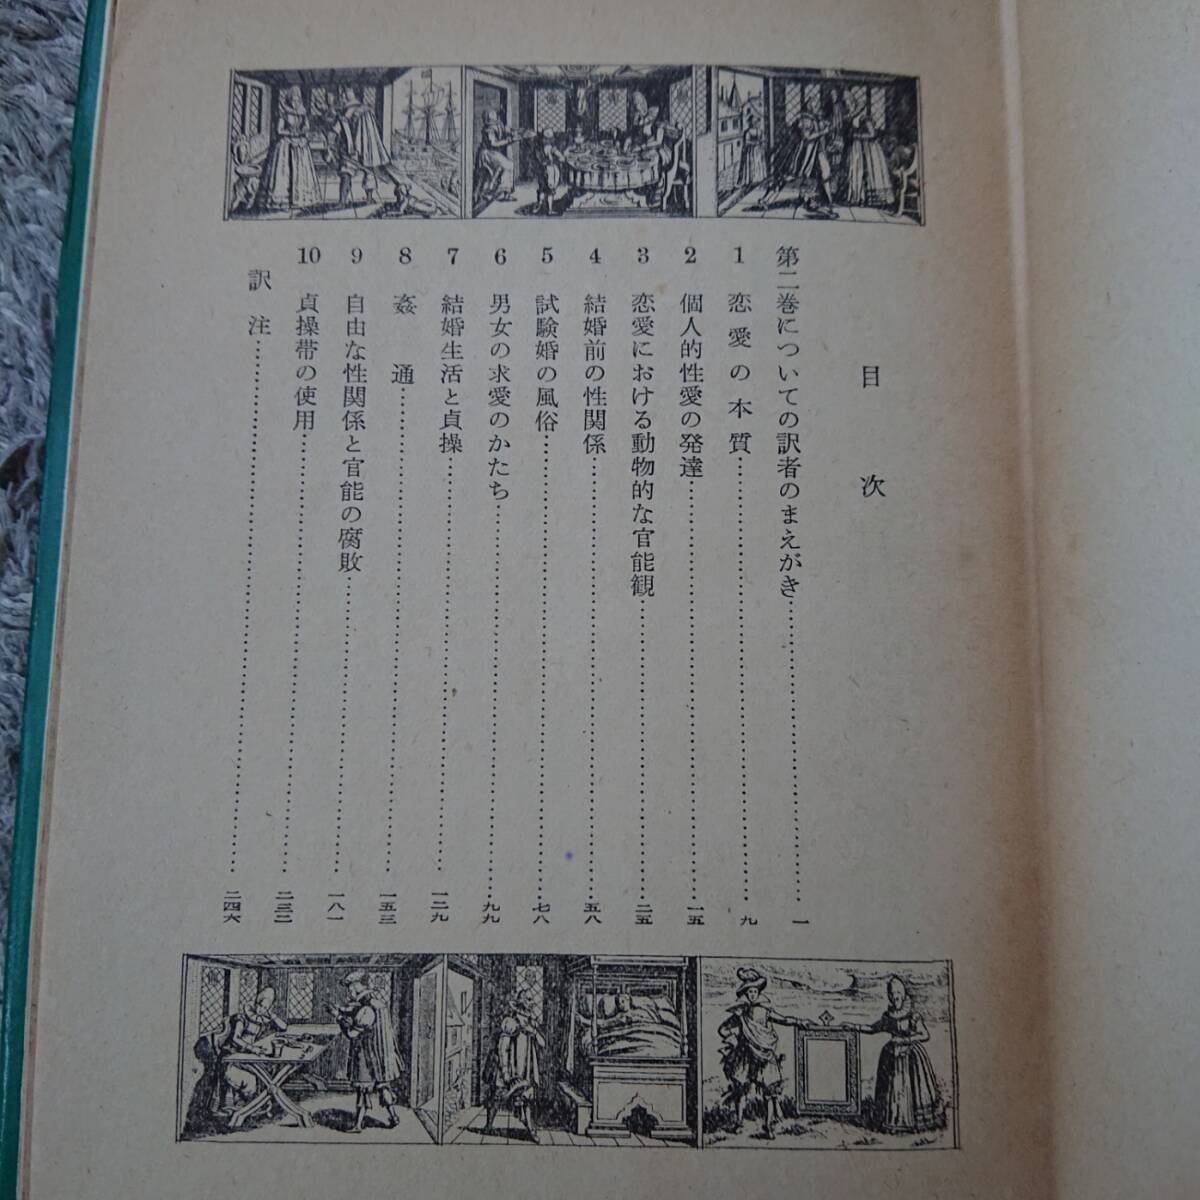 目次
第二巻についての訳者のまえがき……一
1 恋愛の本質……九
2 個人的性愛の発達……一五
3 恋愛における動物的な官能観……二五
4 結婚前の性関係……五八
5 試験婚の風俗……七八
6 男女の求愛のかたち……九九
7 結婚生活と貞操……一二九
8 姦通……一五三
9 自由な性関係と官能の腐敗……一八一
10 貞操帯の使用……二三二
訳注……二四六